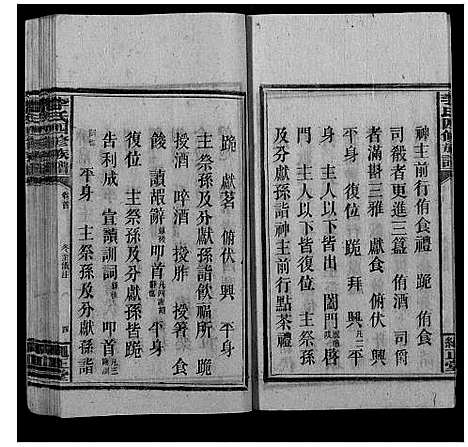 李氏四修族譜
神主前行侑食禮 跪 侑食
司殽者更進三簋 侑酒 司爵
者滿斟三雅 獻食 俯伏 興
平身 復位 跪 拜 興 平
身 主人以下皆出 闔門 啓
門 主人以下皆復位 主祭孫
及分獻孫詣神主前行點茶禮
跪 獻茗 俯伏 興 平身
主祭孫及分獻孫詣飲福所 跪
授酒 啐酒 授胙 授箸 食
餕 讀嘏辭 叩首 平身
復位 主祭孫及分獻孫皆跪
告利成 宣讀訓詞 叩首
平身 主祭孫及分獻孫詣
李氏四修族譜 卷首 冬至儀注 四